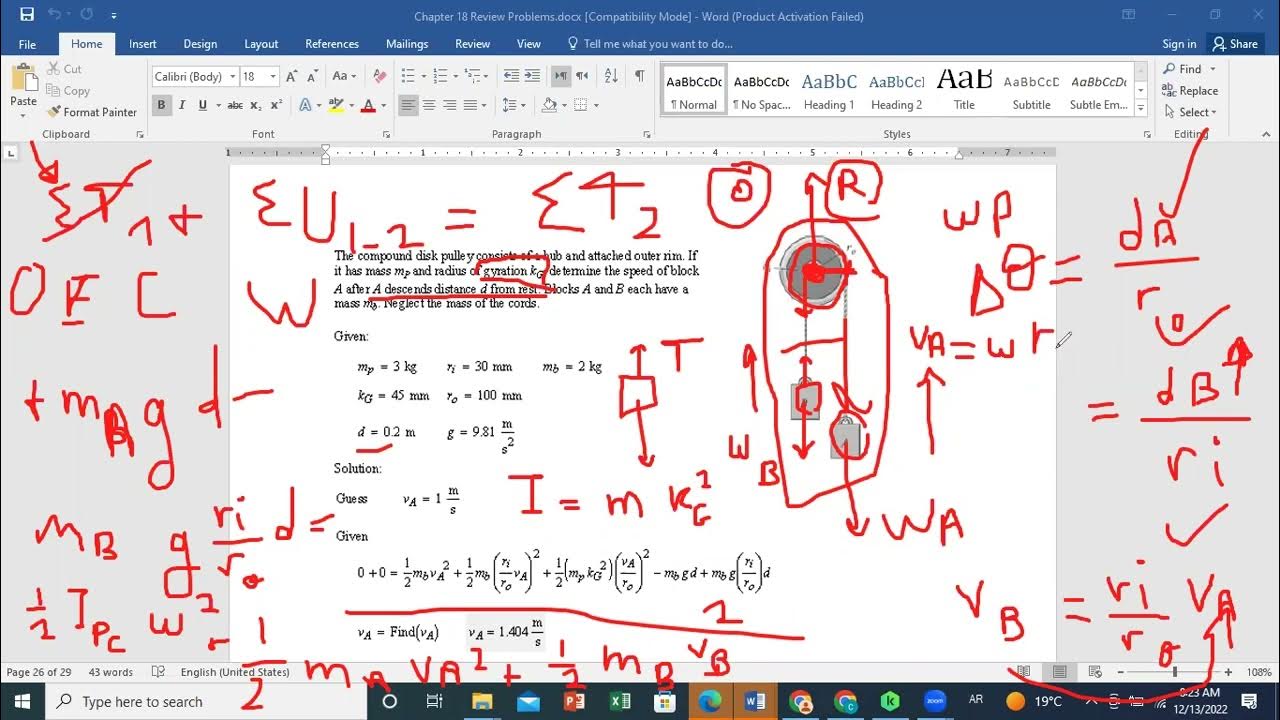 Chapter 18 Review Problems.docx [Compatibility Mode] - Word (Product Activation Failed)
File Home Insert Design Layout References Mailings Review View Tell me what you want to do... Sign in Share
Cut
Copy
Format Painter
Paste
Calibri (Body) 18
AaBbCcDc AaBbCcDc AaBbC AaBbCcI AaB AaBbCcD AaBbCcDc
¶ Normal ¶ No Spac... Heading Heading 2 Title Subtitle Subtle Em...
Find
Replace
Select
Clipboard Font Paragraph Styles Editing
1 1 2 3 4 5 6 7
ΣT1 + ΣU1-2 = ΣT2 O R
The compound disk pulley consists of a hub and attached outer rim. If
it has mass mp and radius of gyration kG, determine the speed of block
A after A descends distance d from rest. Blocks A and B each have a
mass mb. Neglect the mass of the cords.
W
Given:
mp = 3 kg ri = 30 mm mb = 2 kg
kG = 45 mm ro = 100 mm
d = 0.2 m g = 9.81 m/s²
Solution:
Guess vA = 1 m/s
Given
0 + 0 = 1/2 mb vA² + 1/2 mb (ri/ro vA)² + 1/2 (mp kG²)(vA/ro)² − mb g d + mb g (ri/ro) d
vA = Find(vA) vA = 1.404 m/s
+ mA g d -
mB g ri/ro d =
1/2 IPC w²
1/2 mA vA² + 1/2 mB vB²
T
I = m kG²
ro
W B
WA
wp
Δθ = dA/ro
= dB/ri
vA = w r
vB = ri/ro vA
Page 26 of 29 43 words English (United States) 108%
Type here to search
zoom
AR
19°C
12/13/2022